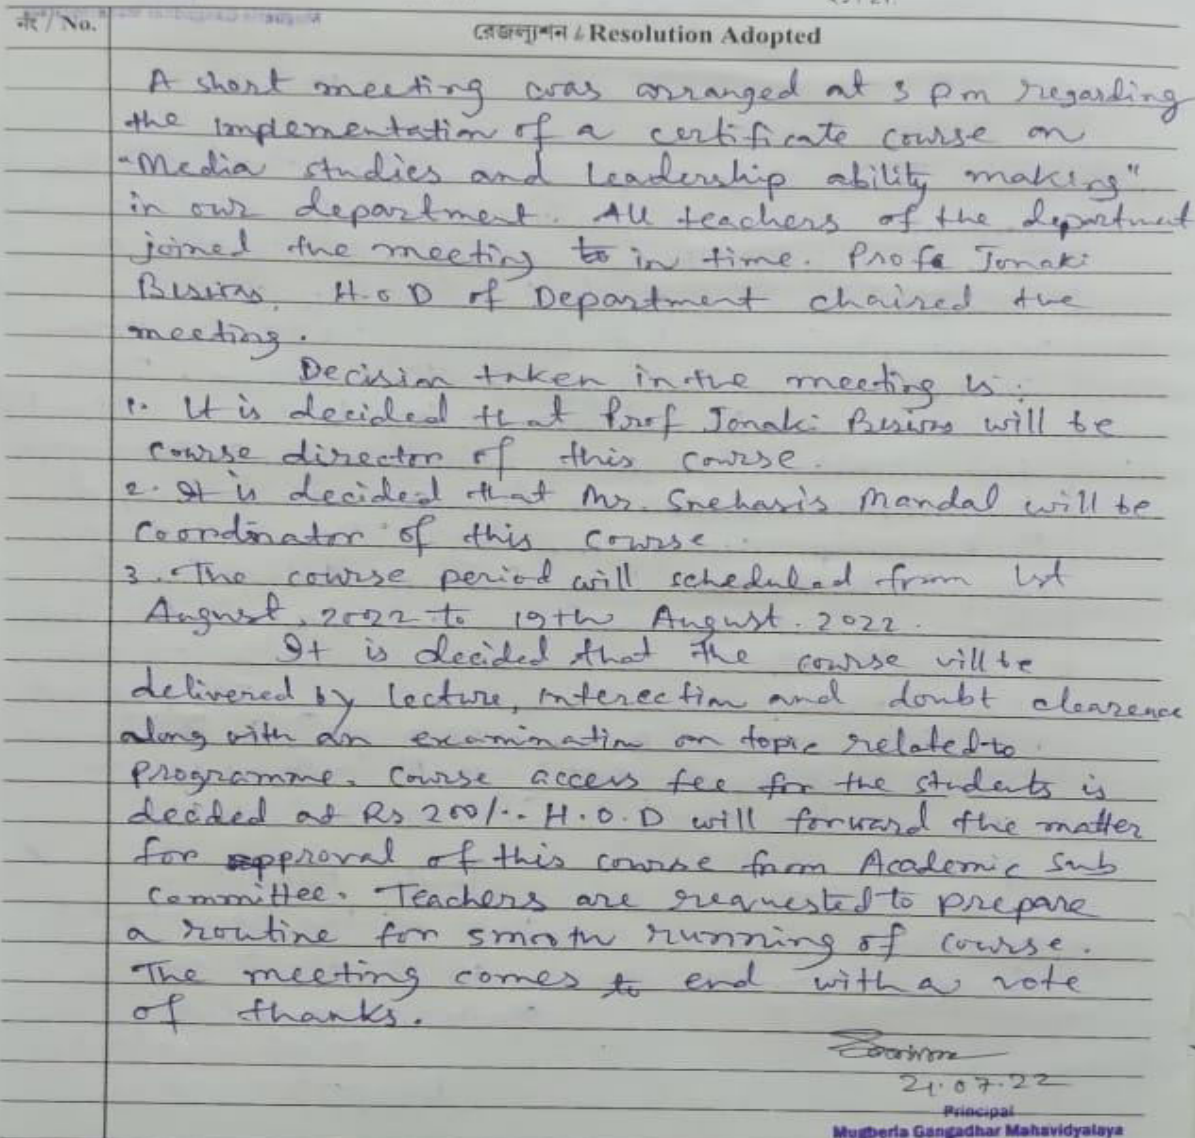 নং / No.
রেজল্যুশন / Resolution Adopted
A short meeting was arranged at 3 pm regarding
the implementation of a certificate course on
"Media studies and Leadership ability making"
in our department. All teachers of the department
joined the meeting to in time. Prof Jonaki
Biswas, H.O.D of Department chaired the
meeting.
Decision taken in the meeting is :
1. It is decided that Prof Jonaki Biswas will be
course director of this course.
2. It is decided that Mr. Snehasis Mandal will be
Coordinator of this course.
3. The course period will scheduled from 1st
August, 2022 to 19th August. 2022.
It is decided that the course will be
delivered by lecture, interection and doubt clearence
along with an examination on topic related to
programme. Course access fee for the students is
decided at Rs 200/-. H.O.D will forward the matter
for approval of this course from Academic Sub
Committee. Teachers are requested to prepare
a routine for smooth running of course.
The meeting comes to end with a vote
of thanks.
21.07.22
Principal
Mugberia Gangadhar Mahavidyalaya